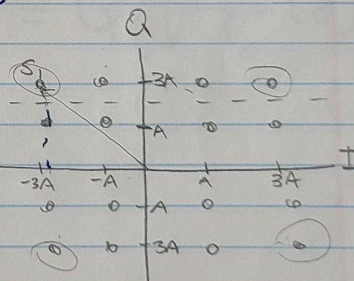 Q
S 3A
A
I
-3A -A A 3A
-A
-3A